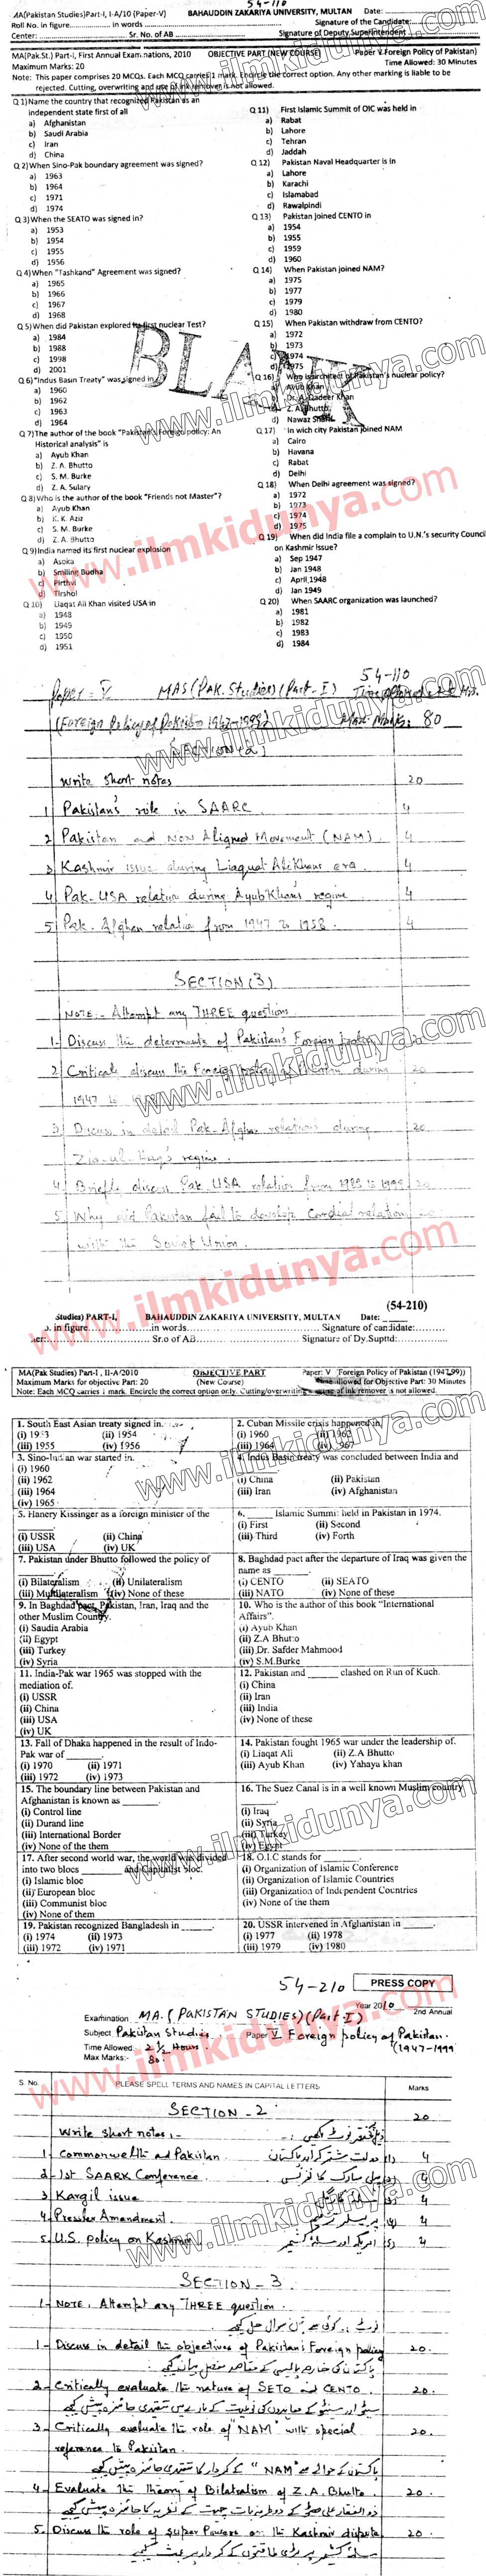 54-110
MA(Pakistan Studies)Part-I, I-A/10 (Paper-V) BAHAUDDIN ZAKARIYA UNIVERSITY, MULTAN Date:
Roll No. in figure in words Signature of the Candidate:
Center: Sr. No. of AB Signature of Deputy Superintendent
MA(Pak.St.) Part-I, First Annual Examinations, 2010 OBJECTIVE PART (NEW COURSE) Paper V Foreign Policy of Pakistan)
Maximum Marks: 20 Time Allowed: 30 Minutes
Note: This paper comprises 20 MCQs. Each MCQ carries 1 mark. Encircle the correct option. Any other marking is liable to be
rejected. Cutting, overwriting and use of ink remover is not allowed.
Q 1)Name the country that recognized Pakistan as an
independent state first of all
a) Afghanistan
b) Saudi Arabia
c) Iran
d) China
Q 2)When Sino-Pak boundary agreement was signed?
a) 1963
b) 1964
c) 1971
d) 1974
Q 3)When the SEATO was signed in?
a) 1953
b) 1954
c) 1955
d) 1956
Q 4)When "Tashkand" Agreement was signed?
a) 1965
b) 1966
c) 1967
d) 1968
Q 5)When did Pakistan explored its first nuclear Test?
a) 1984
b) 1988
c) 1998
d) 2001
Q 6)"Indus Basin Treaty" was signed in
a) 1960
b) 1962
c) 1963
d) 1964
Q 7)The author of the book "Pakistan's Foreign policy: An
Historical analysis" is
a) Ayub Khan
b) Z. A. Bhutto
c) S. M. Burke
d) Z. A. Sulary
Q 8)Who is the author of the book "Friends not Master"?
a) Ayub Khan
b) K. K. Aziz
c) S. M. Burke
d) Z. A. Bhutto
Q 9)India named its first nuclear explosion
a) Asoka
b) Smiling Budha
c) Pirthvi
d) Tirshol
Q 10) Liaqat Ali Khan visited USA in
a) 1948
b) 1949
c) 1950
d) 1951
Q 11) First Islamic Summit of OIC was held in
a) Rabat
b) Lahore
c) Tehran
d) Jaddah
Q 12) Pakistan Naval Headquarter is in
a) Lahore
b) Karachi
c) Islamabad
d) Rawalpindi
Q 13) Pakistan joined CENTO in
a) 1954
b) 1955
c) 1959
d) 1960
Q 14) When Pakistan joined NAM?
a) 1975
b) 1977
c) 1979
d) 1980
Q 15) When Pakistan withdraw from CENTO?
a) 1972
b) 1973
c) 1974
d) 1975
Q 16) Who is architect of Pakistan's nuclear policy?
a) Ayub Khan
b) Dr. A. Qadeer Khan
c) Z. A. Bhutto
d) Nawaz Sharif
Q 17) In wich city Pakistan joined NAM
a) Cairo
b) Havana
c) Rabat
d) Delhi
Q 18) When Delhi agreement was signed?
a) 1972
b) 1973
c) 1974
d) 1975
Q 19) When did India file a complain to U.N.'s security Council
on Kashmir issue?
a) Sep 1947
b) Jan 1948
c) April,1948
d) Jan 1949
Q 20) When SAARC organization was launched?
a) 1981
b) 1982
c) 1983
d) 1984
BLANK
www.ilmkidunya.com
54-110
Paper = V MAS (PAK. Studies) (Part-I)
(Foreign Policy of Pakistan 1947-1999) Max. Marks: 80
SECTION (2)
Write short notes 20
1 Pakistan's role in SAARC. 4
2 Pakistan and NON Aligned Movement (NAM). 4
3 Kashmir issue during Liaquat Ali Khan's era. 4
4 Pak-USA relation during Ayub Khan's regime 4
5 Pak-Afghan relation from 1947 to 1958. 4
SECTION (3)
NOTE:- Attempt any THREE questions
1- Discuss the determinants of Pakistan's Foreign policy 20
2 Critically discuss the Foreign policy of Pakistan during 20
1947 to
3 Discuss in detail Pak-Afghan relations during 20
Zia-ul-Haq's regime.
4 Briefly discuss Pak USA relation from 1988 to 1999 20
5 Why did Pakistan fail to develop Cordial relation 20
with the Soviet Union.
(54-210)
Studies) PART-I, BAHAUDDIN ZAKARIYA UNIVERSITY, MULTAN Date:
in figure in words Signature of candidate:
Sr.o of AB Signature of Dy.Supttd:
MA(Pak Studies) Part-I , II-A/2010 OBJECTIVE PART Paper: V (Foreign Policy of Pakistan (1947,99))
Maximum Marks for objective Part: 20 (New Course) Time allowed for Objective Part: 30 Minutes
Note: Each MCQ carries 1 mark. Encircle the correct option only. Cutting/overwriting use of ink remover is not allowed.
1. South East Asian treaty signed in.
(i) 1953 (ii) 1954
(iii) 1955 (iv) 1956
2. Cuban Missile crisis happened in
(i) 1960 (ii) 1962
(iii) 1964 (iv) 1967
3. Sino-Indian war started in.
(i) 1960
(ii) 1962
(iii) 1964
(iv) 1965
4. Indus Basin treaty was concluded between India and
(i) China (ii) Pakistan
(iii) Iran (iv) Afghanistan
5. Hanery Kissinger as a foreign minister of the
(i) USSR (ii) China
(iii) USA (iv) UK
6. Islamic Summit held in Pakistan in 1974.
(i) First (ii) Second
(iii) Third (iv) Forth
7. Pakistan under Bhutto followed the policy of
(i) Bilateralism (ii) Unilateralism
(iii) Multilateralism (iv) None of these
8. Baghdad pact after the departure of Iraq was given the
name as
(i) CENTO (ii) SEATO
(iii) NATO (iv) None of these
9. In Baghdad pact, Pakistan, Iran, Iraq and the
other Muslim Country
(i) Saudia Arabia
(ii) Egypt
(iii) Turkey
(iv) Syria
10. Who is the author of this book "International
Affairs".
(i) Ayub Khan
(ii) Z.A Bhutto
(iii) Dr. Safder Mahmood
(iv) S.M.Burke
11. India-Pak war 1965 was stopped with the
mediation of.
(i) USSR
(ii) China
(iii) USA
(iv) UK
12. Pakistan and clashed on Run of Kuch.
(i) China
(ii) Iran
(iii) India
(iv) None of these
13. Fall of Dhaka happened in the result of Indo-
Pak war of
(i) 1970 (ii) 1971
(iii) 1972 (iv) 1973
14. Pakistan fought 1965 war under the leadership of.
(i) Liaqat Ali (ii) Z.A Bhutto
(iii) Ayub Khan (iv) Yahaya khan
15. The boundary line between Pakistan and
Afghanistan is known as
(i) Control line
(ii) Durand line
(iii) International Border
(iv) None of the them
16. The Suez Canal is in a well known Muslim country
(i) Iraq
(ii) Syria
(iii) Turkey
(iv) Egypt
17. After second world war, the world was divided
into two blocs and Capitalist bloc.
(i) Islamic bloc
(ii) European bloc
(iii) Communist bloc
(iv) None of them
18. O.I.C stands for
(i) Organization of Islamic Conference
(ii) Organization of Islamic Countries
(iii) Organization of Independent Countries
(iv) None of the them
19. Pakistan recognized Bangladesh in
(i) 1974 (ii) 1973
(iii) 1972 (iv) 1971
20. USSR intervened in Afghanistan in
(i) 1977 (ii) 1978
(iii) 1979 (iv) 1980
54-210 PRESS COPY
Examination MA. (PAKISTAN STUDIES) (Part-I) Year 2010 2nd Annual
Subject Pakistan Studies Paper V Foreign policy of Pakistan.
Time Allowed: 2½ Hours (1947-1999
Max Marks:- 80.
S. No. PLEASE SPELL TERMS AND NAMES IN CAPITAL LETTERS Marks
SECTION - 2 20
Write short notes:-
1 Commonwelth and Pakistan. 4
2 1st SAARK Conference. 4
3 Kargil issue 4
4 Pressler Amandment. 4
5 U.S. policy on Kashmir 4
SECTION - 3
1- NOTE: Attempt any THREE question.
1- Discuss in detail the objectives of Pakistan's Foreign policy 20.
پاکستان کی خارجہ پالیسی کے مقاصد مفصل بیان کیجیے
2- Critically evaluate the nature of SETO and CENTO. 20.
3- Critically evaluate the role of "NAM" with special 20.
reference to Pakistan.
پاکستان کے حوالے سے "NAM" کے کردار کا تنقیدی جائزہ پیش کیجیے
4- Evaluate the theory of Bilatralism of Z.A. Bhutto. 20.
5. Discuss the role of super Powers on the Kashmir dispute. 20.